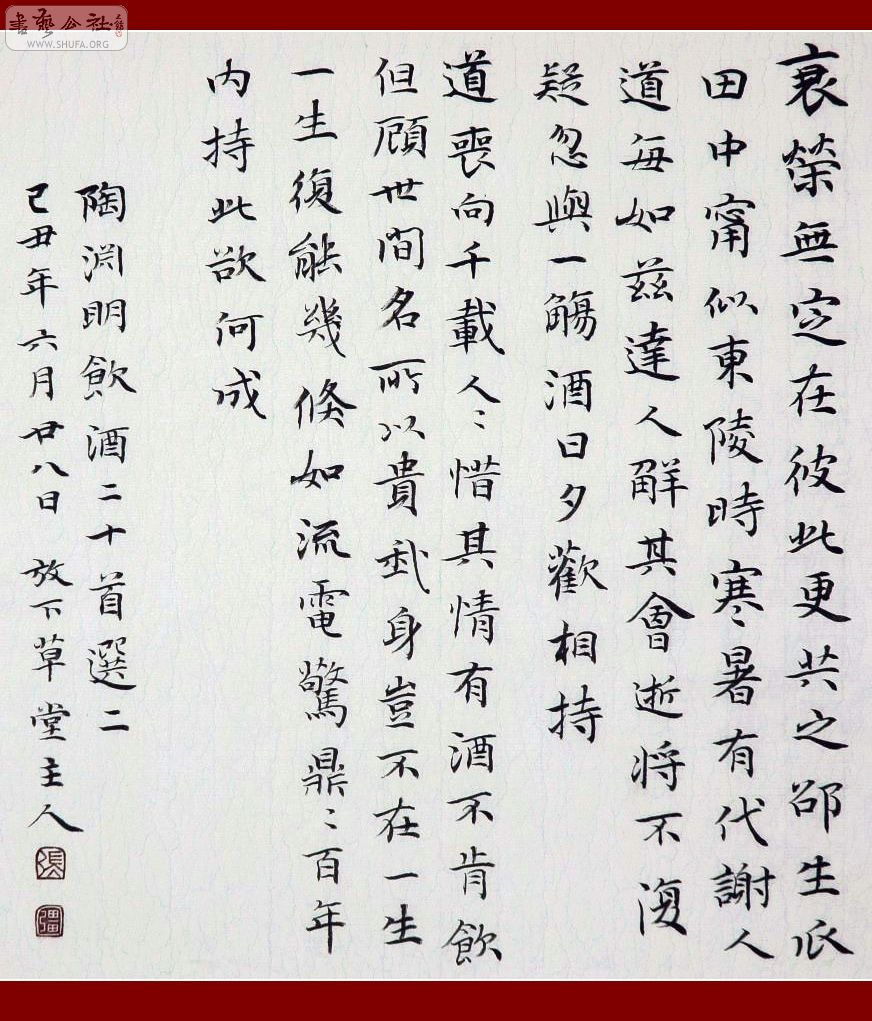 衰榮無定在彼此更共之邵生瓜
田中甯似東陵時寒暑有代謝人
道每如茲達人解其會逝将不復
疑忽與一觴酒日夕歡相持
道喪向千載人〻惜其情有酒不肯飲
但顧世間名所以貴我身豈不在一生
一生復能幾倏如流電驚鼎〻百年
内持此欲何成
陶淵明飲酒二十首選二
己丑年六月廿八日 放下草堂主人
張
書藝公社
WWW.SHUFA.ORG